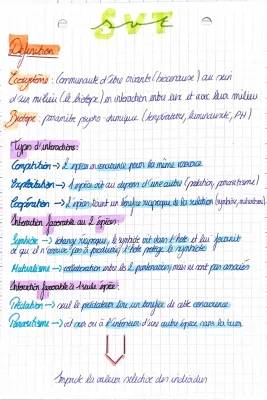 SVT
Définition
Écosystème : communauté d'être vivants (biocénose) au sein
d'un milieu (le biotope) en interaction entre eux et avec leur milieu
Biotope : paramètre physico chimique (température, luminosité, PH)
Types d'interactions :
Compétition → 2 espèces en concurence pour la même ressource
Exploitation → 1 espèce vit au dépend d'une autre (prédation, parasitisme)
Coopération → 2 espèces tirent un bénéfice réciproque de la relation (symbiose, mutualisme)
Interaction favorable au 2 espèces :
Symbiose → échange réciproque, le symbiote vit dans l'hôte et lui fournit
ce qu'il n'arrive pas à produire, l'hôte protège le symbiote
Mutualisme → collaboration entre les 2 partenaires mais ne sont pas associés
Interaction favorable à 1 seule espèce :
Prédation → seul le prédateur tire un bénéfice de cette
Parasitisme → vit sur ou à l'intérieur d'une autre espèce sans la tuer
Impacte la valeur sélective des individus